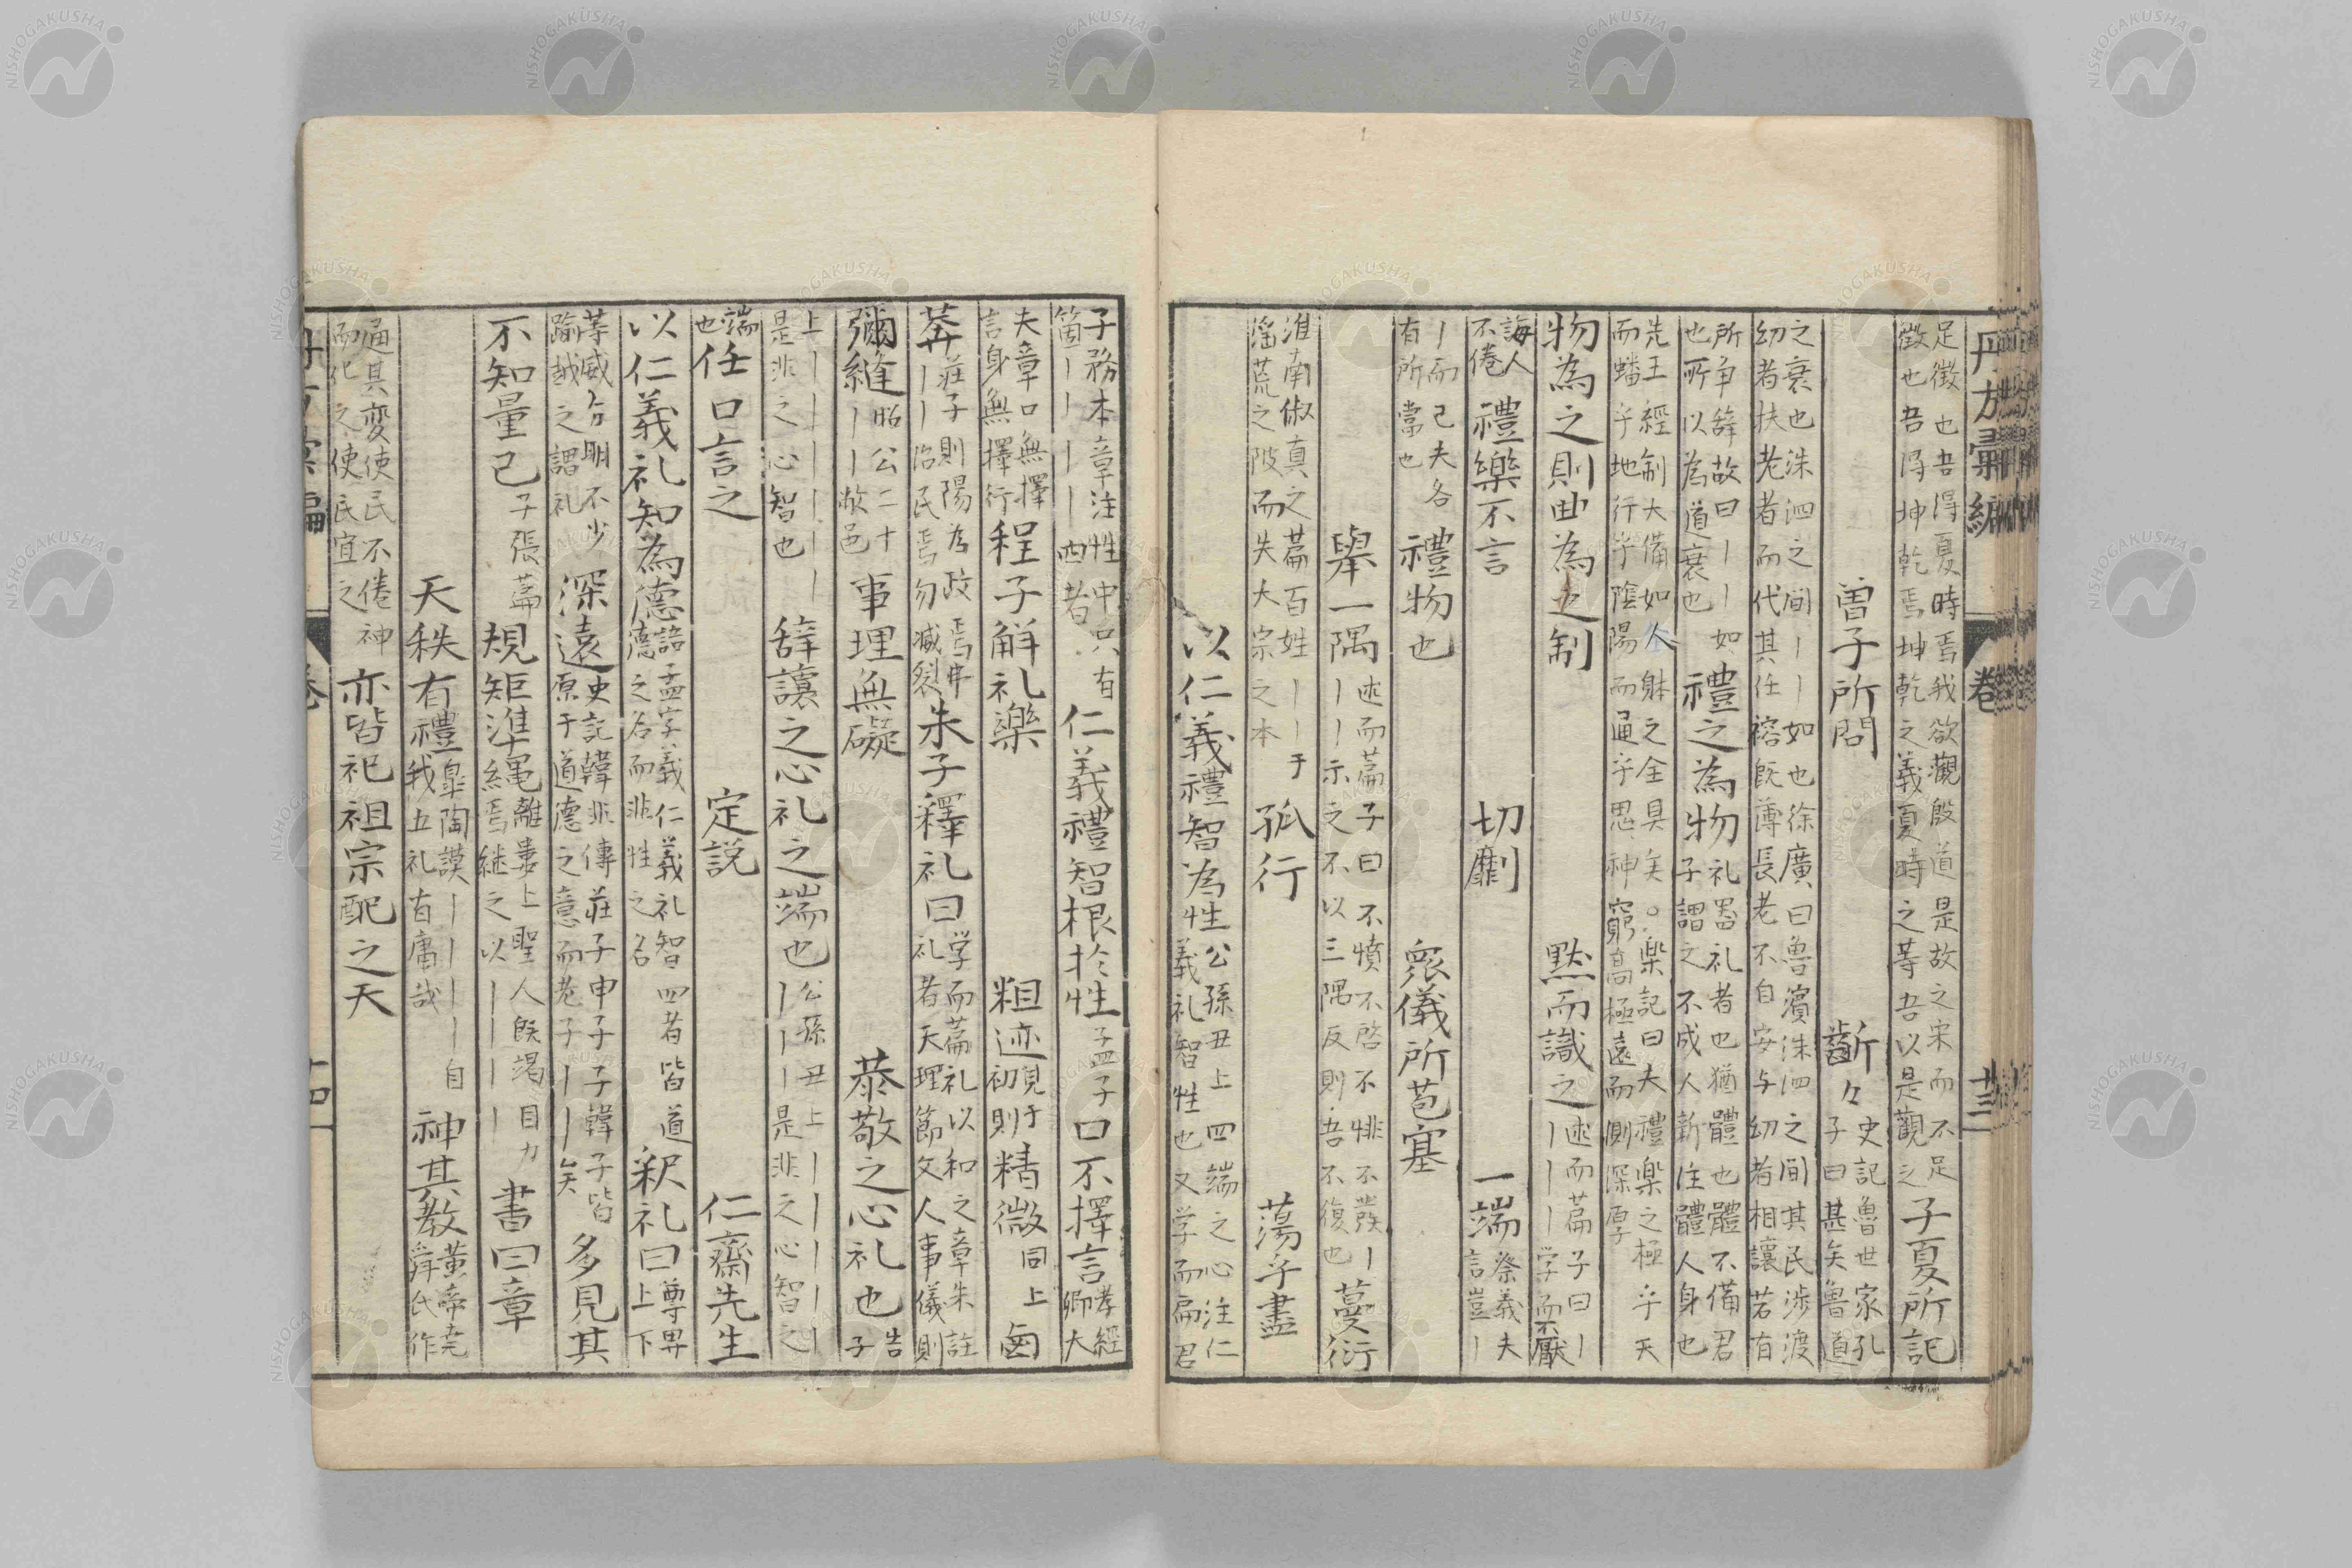 丹方彙編
卷
十三
足徵也吾得夏時焉我欲觀殷道是故之宋而不足
徵也吾得坤乾焉坤乾之義夏時之等吾以是觀之
子夏所記
曽子所問
齗々
史記魯世家孔
子曰甚矣魯道
之衰也洙泗之间丨丨如也徐廣曰魯濱洙泗之间其民渉渡
幼者扶老者而代其任
既薄長老不自安与幼者相讓若有
所争辞故曰丨丨如
也所以為道衰也
禮之為物
礼器礼者也猶體也體不備君
子謂之不成人新注體人身也
先王經制大備如人躰之全具矣。楽記曰夫禮楽之極乎天
而蟠乎地行乎陰陽而通乎思神窮高極遠而測深厚
物為之則曲為之制
黙而識之
述而篇子曰丨
丨丨丨学而不厭
誨人
不倦
禮樂不言
切劘
一端
祭義夫
言豈丨
丨而已夫各
有所當也
禮物也
衆儀所苞塞
舉一隅
述而篇子曰不憤不啓不悱不發丨
丨丨示之不以三隅反則吾不復也
蔓衍
淮南俶真之篇百姓丨丨于
滛荒之陂而失大宗之本
孤行
蕩乎盡
以仁義禮智為性
公孫丑上四端之心注仁
義礼智性也又学而扁君
子務本章注性中只有
箇丨丨丨丨四者
仁義禮智根於性
孟子
口不擇言
孝經
卿大
夫章口無擇
言身無擇行
程子解礼樂
粗迹
見于
初則
精微
同上
鹵
莽
莊子則陽為政焉
丨丨治民焉勿滅裂
朱子釋礼曰
学而篇礼以和之章朱註
礼者天理節文人事儀則
彌縫
昭公二十
丨丨敝邑
事理無礙
恭敬之心礼也
告
子
上丨丨丨丨丨丨
是非之心智也
辞讓之心礼之端也
公孫丑上丨丨丨丨丨
丨丨丨是非之心智之
端
也
任口言之
定説
仁齋先生
以仁義礼知為德
語孟字義仁義礼智四者皆道
德之名而非性之名
釈礼曰
尊卑
上下
等威分明不少
踰越之謂礼
深遠
史記韓非傳莊子申子韓子皆
原于道德之意而老子丨丨矣
多見其
不知量己
子張篇
規矩準繩
離婁上聖人既竭目力
焉継之以丨丨丨丨
書曰章
天秩有禮
皐陶謨丨丨丨丨自
我五礼有庸哉
神其教
黃帝尭
舜氏作
通其変使民不倦神
而化之使民宜之
亦皆祀祖宗配之天
卷
十四